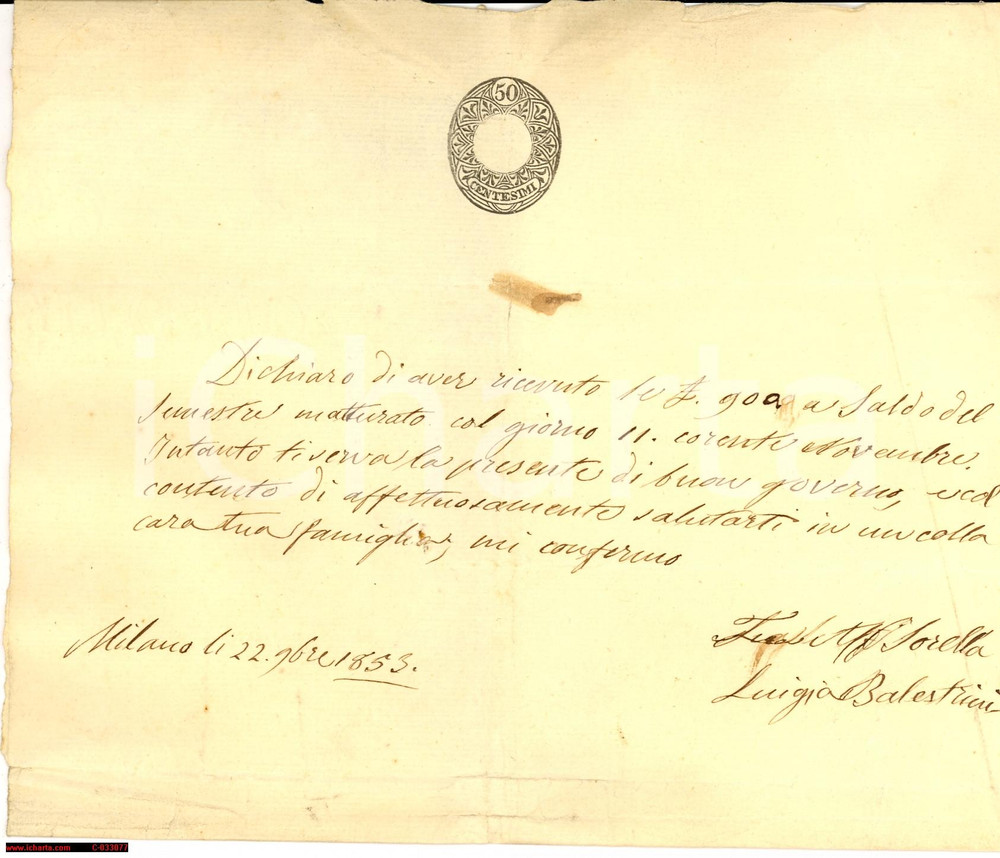 50
CENTESIMI
iCharta
Dichiaro di aver ricevuto le £. 900 a Saldo del
Semestre matturato col giorno 11. corente Novembre.
Intanto ti serva la presente di buon governo, e col
contento di affettuosamente salutarti in un colla
cara tua famiglia, mi confermo
Milano li 22. 9bre 1853.
Tua Aff Sorella
Luigia Balestrini
www.icharta.com C-033077